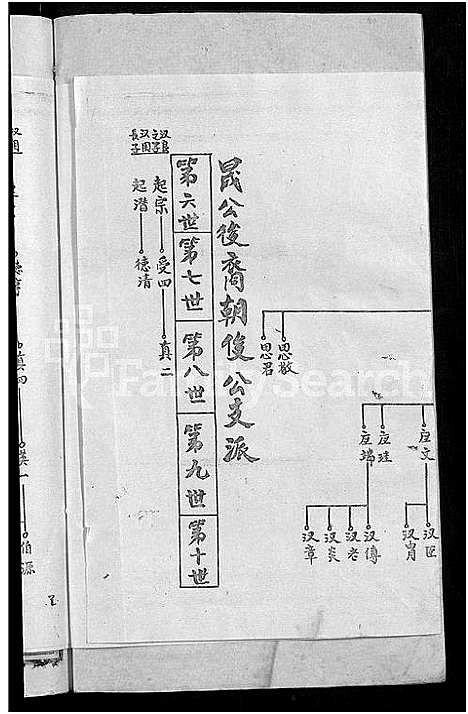 思敬
思君
应文
应珪
应端
汉臣
汉胄
汉傅
汉老
汉炎
汉章
晟公後裔朝俊公支派
第六世
第七世
第八世
第九世
第十世
汉臣之子
起宗
受四
真二
汉周長子
起潛
德清
真四
伯源
FamilySearch